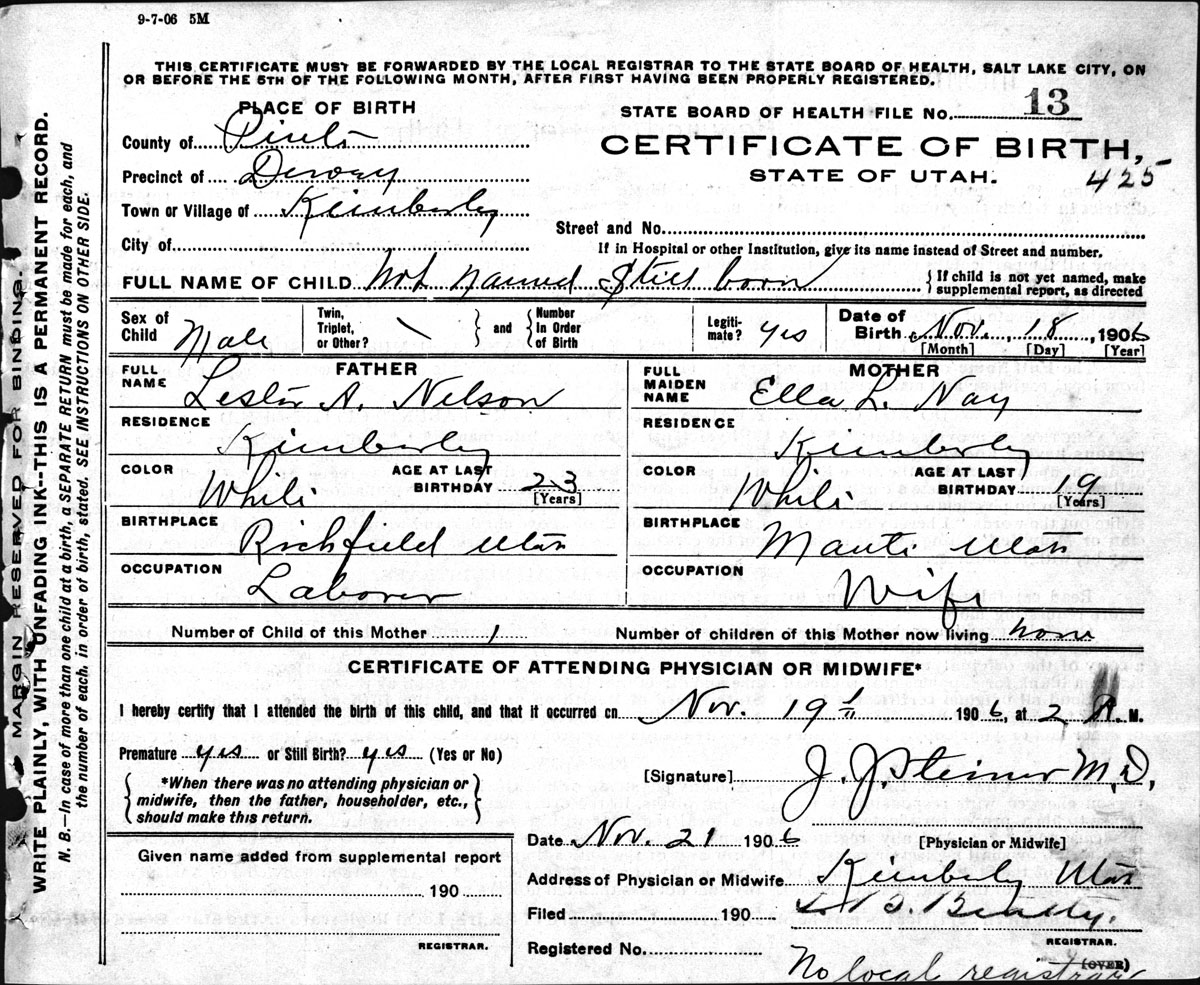 9-7-06 5M
THIS CERTIFICATE MUST BE FORWARDED BY THE LOCAL REGISTRAR TO THE STATE BOARD OF HEALTH, SALT LAKE CITY, ON
OR BEFORE THE 5TH OF THE FOLLOWING MONTH, AFTER FIRST HAVING BEEN PROPERLY REGISTERED.
PLACE OF BIRTH
STATE BOARD OF HEALTH FILE No. 13
County of
CERTIFICATE OF BIRTH,
Precinct of Dewey
STATE OF UTAH. 425
Town or Village of Kimberly
Street and No.
City of
If in Hospital or other Institution, give its name instead of Street and number.
FULL NAME OF CHILD Not named Still born
{If child is not yet named, make
supplemental report, as directed
Sex of Child Male
Twin, Triplet, or Other? \ } and { Number in Order of Birth
Legiti-mate? yes
Date of Birth Nov. 18, 1906
[Month] [Day] [Year]
FATHER
MOTHER
FULL NAME Lester A. Nelson
FULL MAIDEN NAME Ella L. Nay
RESIDENCE Kimberly
RESIDENCE Kimberly
COLOR White AGE AT LAST BIRTHDAY 23 [Years]
COLOR White AGE AT LAST BIRTHDAY 19 [Years]
BIRTHPLACE Richfield Utah
BIRTHPLACE Manti Utah
OCCUPATION Laborer
OCCUPATION Wife
Number of Child of this Mother 1 Number of children of this Mother now living none
CERTIFICATE OF ATTENDING PHYSICIAN OR MIDWIFE*
I hereby certify that I attended the birth of this child, and that it occurred on Nov. 19 1906, at 2 A. M.
Premature yes or Still Birth? yes (Yes or No)
[Signature] J. J. Steiner M.D.
{*When there was no attending physician or
midwife, then the father, householder, etc.,
should make this return.}
Date Nov. 21 1906 [Physician or Midwife]
Given name added from supplemental report
190
REGISTRAR.
Address of Physician or Midwife Kimberly Utah
Filed 190
REGISTRAR.
Registered No.
(OVER)
No local registrar
MARGIN RESERVED FOR BINDING.
WRITE PLAINLY, WITH UNFADING INK--THIS IS A PERMANENT RECORD.
N. B.—In case of more than one child at a birth, a SEPARATE RETURN must be made for each, and
the number of each, in order of birth, stated. SEE INSTRUCTIONS ON OTHER SIDE.